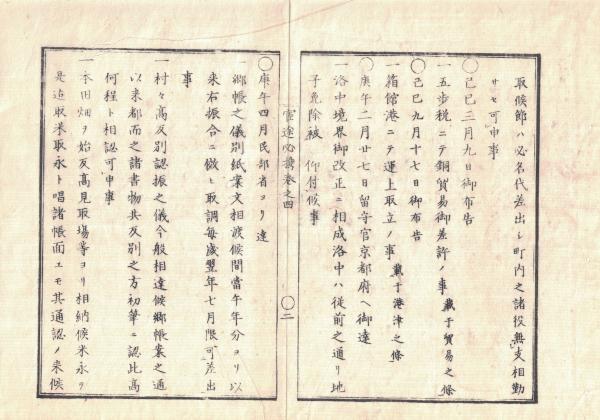 取候節ハ必名代差出シ町内之諸役無支相勤
サセ可申事
〇己巳三月九日御布告
一五歩税ニテ銅貿易御差許ノ事 載于貿易之條
〇己巳九月十七日御布告
一箱館港ニテ運上取立ノ事 載于港津之條
〇庚午二月廿七日留守官京都府ヘ御達
一洛中境界御改正ニ相成洛中ハ従前之通リ地
子免除被 仰付候事
官途必携巻之四
〇二
〇庚午四月民部省ヨリ達
一郷帳之儀別紙案文相渡候間當午年分ヨリ以
来右振合ニ倣ヒ取調毎歳翌年七月限可差出
事
一村々高反別認振之儀今般相達候郷帳案之通
以来都而之諸書物共反別之方初筆ニ認此高
何程ト相認可申事
一本田畑ヲ始反高見取場等ヨリ相納候米永ヲ
是迄取米取永ト唱諸帳面エモ其通認ノ来候